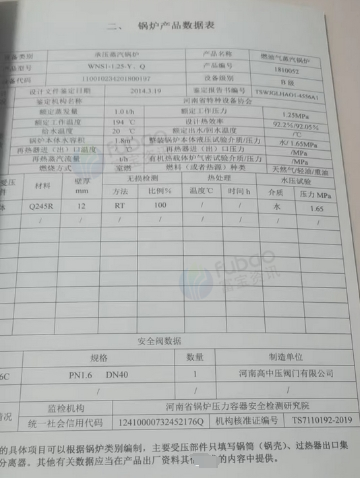 二、 锅炉产品数据表
备类别 承压蒸汽锅炉 产品名称 燃油气蒸汽锅炉
品型号 WNS1-1.25-Y、Q 产品编号
备代码 设备级别 B级
设计文件鉴定日期 2014.3.19 鉴定报告书编号
鉴定机构名称 河南省特种设备协会
额定蒸发量 1.0 t/h 额定工作压力 1.25MPa
额定工作温度 194 ℃ 设计热效率
给水温度 20 ℃ 额定出水/回水温度 /℃
锅炉本体水容积 整装锅炉本体液压试验介质/压力 水/ 1.65MPa
再热器进（出）口温度 再热器进（出）口压力 /MPa
再热蒸汽流量 t/h 有机热载体炉气密试验介质/压力 /MPa
燃烧方式 室燃 燃料（或者热源）种类 天然气/轻油/重油
材料 壁厚 mm 无损检测 热处理 水压试验
方法 比例% 温度℃ 时间 h 介质 压力 MPa
体 Q245R 12 RT 100 / / 水 1.65
/ / / / / / / /
fubao
安全阀数据
规格 数量 制造单位
6C PN1.6 DN40 1 河南高中压阀门有限公司
/ / /
情况 监检机构 河南省锅炉压力容器安全检测研究院
统一社会信用代码 12410000732452176Q 机构核准证编号 TS7110192-2019
的具体项目可以根据锅炉类别编制，主要受压部件只填写锅筒（锅壳）、过热器出口集
分离器。其他有关数据应当在产品出厂资料其 的内容中提供。